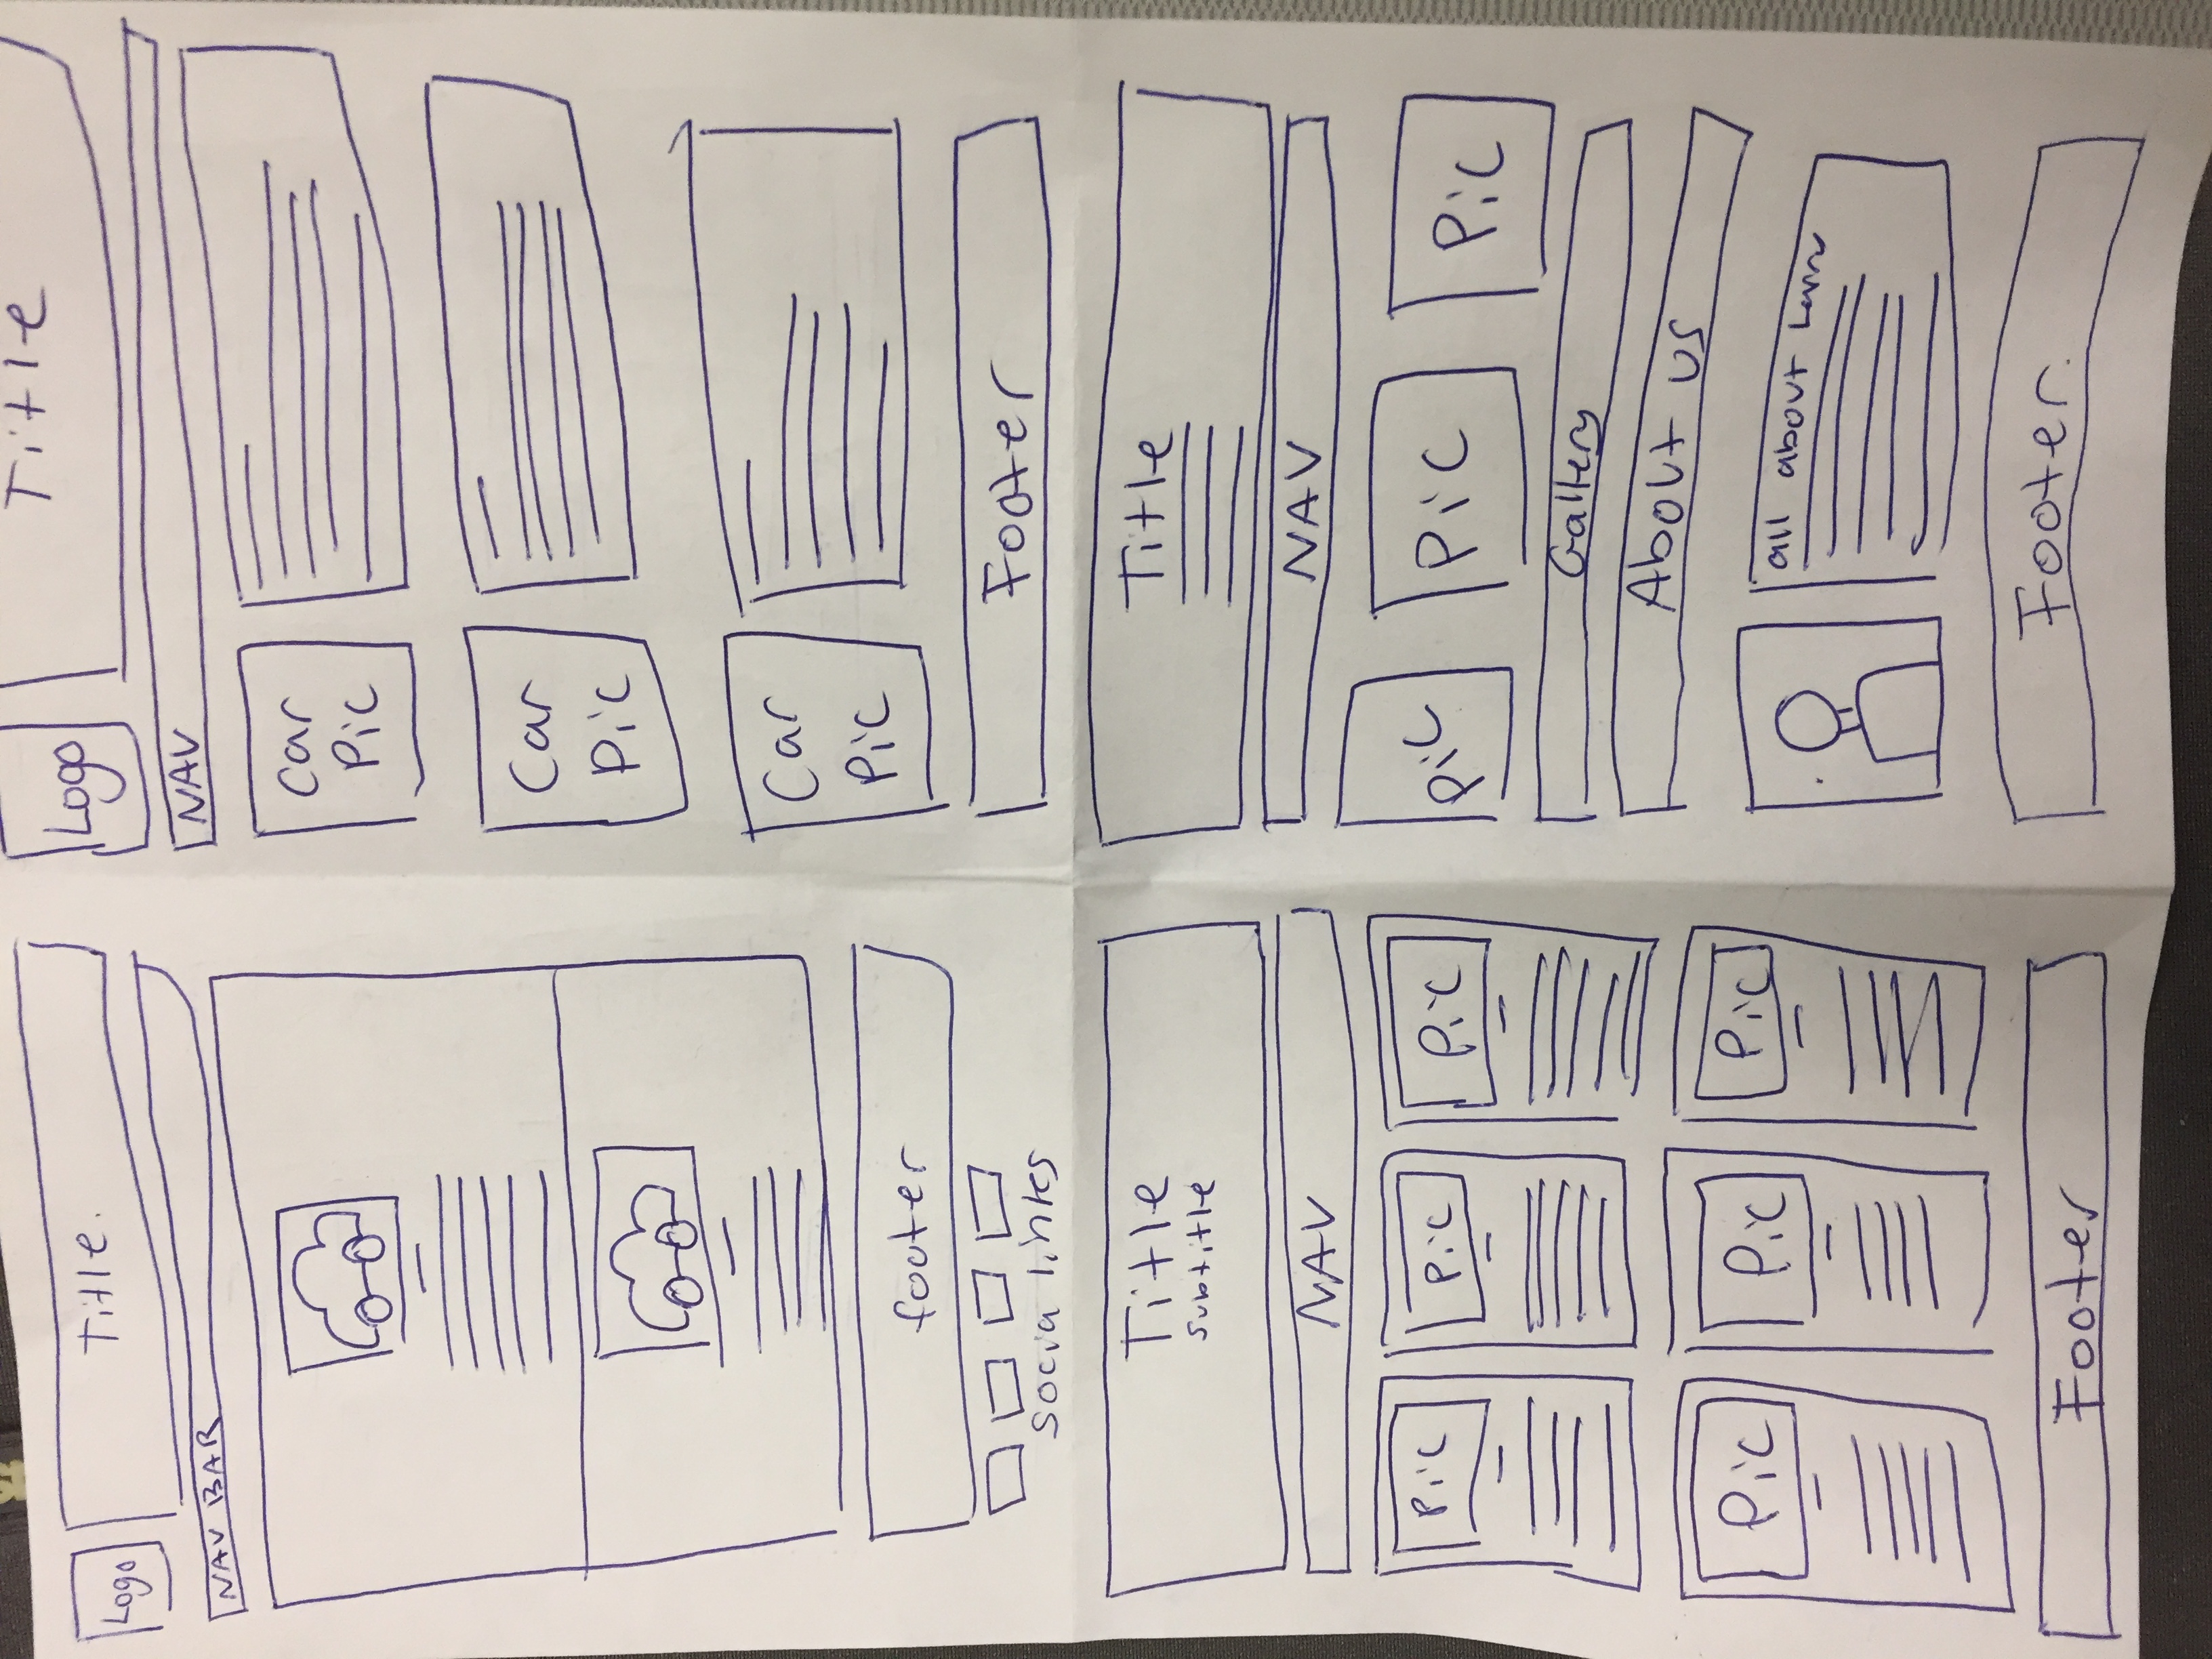 Logo
Title.
NAV BAR
footer
Socia links
Logo
Title
NAV
Car
Pic
Car
Pic
Car
Pic
Footer
Title
subtitle
NAV
Pic
Pic
Pic
Pic
Pic
Pic
Footer
Title
NAV
Pic
Pic
Pic
Gallery
About us
all about
Footer.